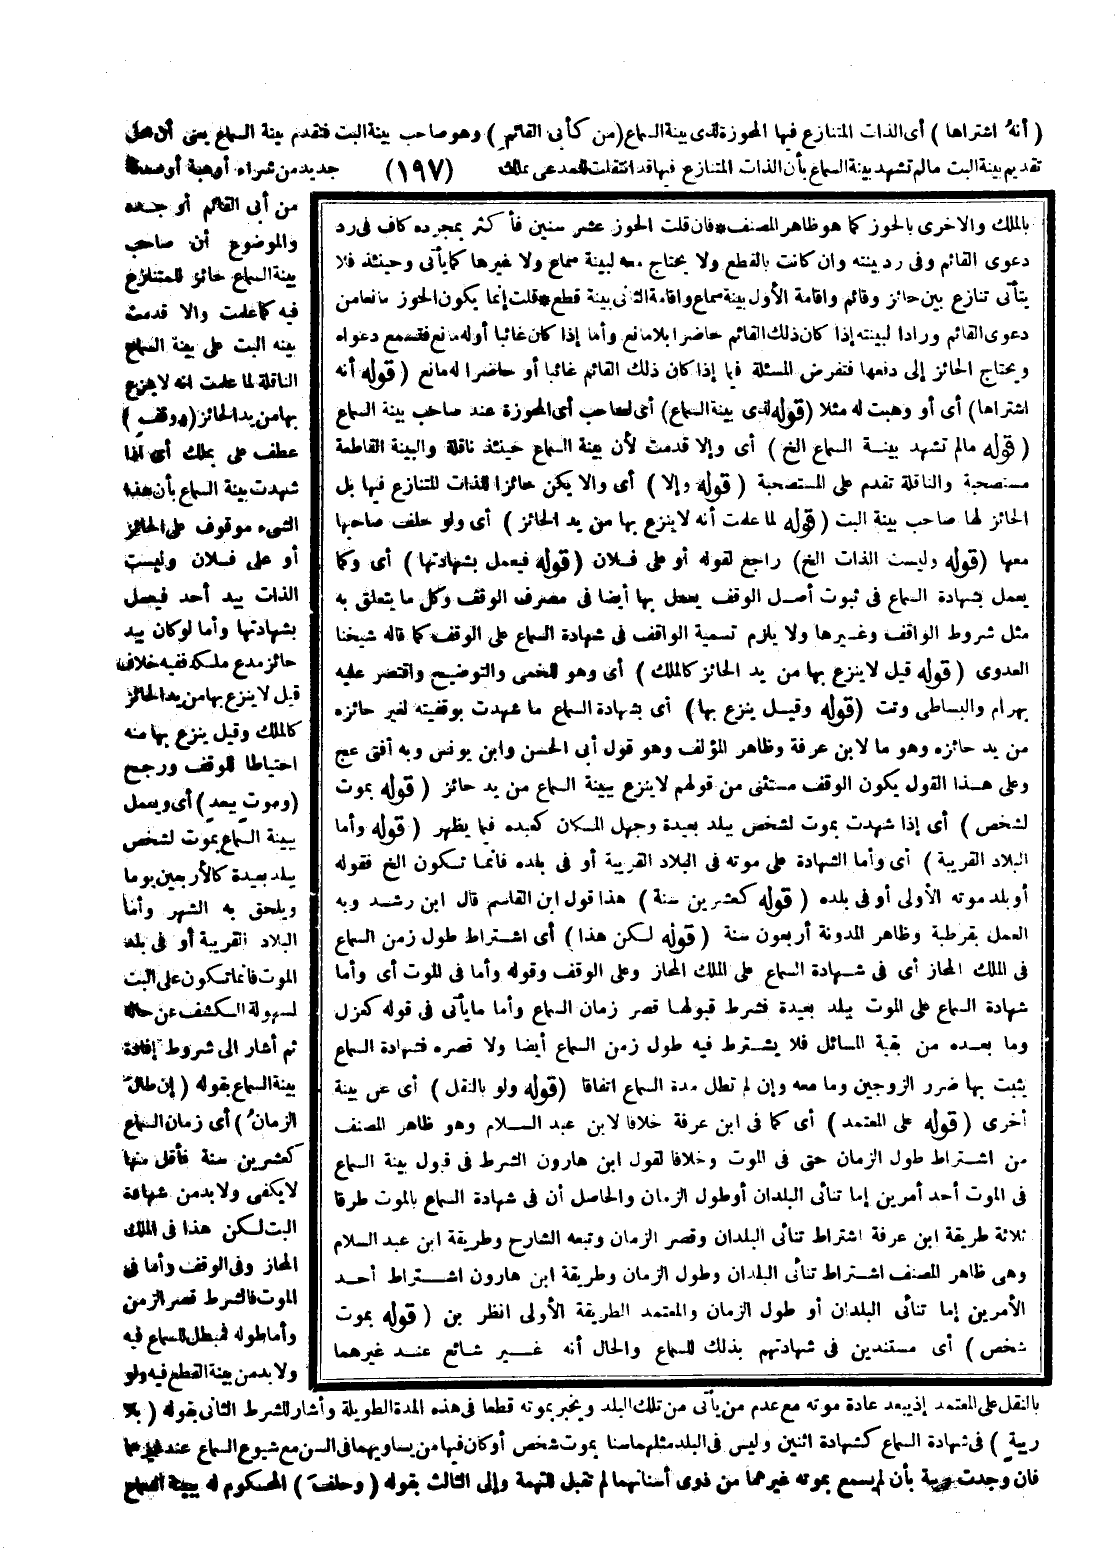 ( أنه اشتراها ) أى الذات المتنازع فيها المحوزة لذى بينة السماع ( من كأبى القائم ) وهو صاحب بينة البت فتقدم بينة السماع يعنى أن محل
تقديم بينة البت مالم تشهد بينة السماع بأن الذات المتنازع فيها قد انتقلت للمدعى بملك
(١٩٧)
جديد من شراء أو هبة أو صدقة
من أبى القائم أو جده
والموضوع أن صاحب
بينة السماع حائز للمتنازع
فيه كما علمت والا قدمت
بينه البت على بينة السماع
الناقلة لما علمت انه لا ينزع
بها من يد الحائز ( ووقف )
عطف على بملك أى اذا
شهدت بينة السماع بأن هذا
الشىء موقوف على الحائز
أو على فلان وليست
الذات بيد أحد فيعمل
بشهادتها وأما لوكان بيد
حائز مدع ملكه ففيه خلاف
قيل لا ينزع بها من يد الحائز
كالملك وقيل ينزع بها منه
احتياطا للوقف ورجح
( وموت ببعد ) أى ويعمل
ببينة السماع بموت لشخص
ببلد بعيدة كالأربعين يوما
ويلحق به الشهر وأما
البلاد القريبة أو فى بلد
الموت فانما تكون على البت
لسهولة الكشف عن حاله
ثم أشار الى شروط إفادة
بينة السماع بقوله ( إن طال
الزمان ) أى زمان السماع
كعشرين سنة فأقل منها
لا يكفى ولابد من شهادة
البت لكن هذا فى الملك
المحاز وفى الوقف وأما فى
الموت فالشرط قصر الزمن
وأما طوله فمبطل للسماع فيه
ولابد من بينة القطع فيه ولو
بالملك والاخرى بالحوز كما هو ظاهر المصنف * فان قلت الحوز عشر سنين فأكثر بمجرده كاف فى رد
دعوى القائم وفى رد بينته وان كانت بالقطع ولا يحتاج معه لبينة سماع ولا غيرها كما يأتى وحينئذ فلا
يتأتى تنازع بين حائز وقائم واقامة الأول بينة سماع واقامة الثانى بينة قطع * قلت إنما يكون الحوز مانعا من
دعوى القائم ورادا لبينته إذا كان ذلك القائم حاضرا بلا مانع وأما إذا كان غائبا أوله مانع فتسمع دعواه
ويحتاج الحائز إلى دفعها فتفرض المسئلة فيما إذا كان ذلك القائم غائبا أو حاضرا له مانع ( قوله أنه
اشتراها ) أى أو وهبت له مثلا ( قوله لذى بينة السماع ) أى لصاحب أى المحوزة عند صاحب بينة السماع
( قوله مالم تشهد بينة السماع الخ ) أى وإلا قدمت لأن بينة السماع حينئذ ناقلة والبينة القاطعة
مستصحبة والناقلة تقدم على المستصحبة ( قوله وإلا ) أى والا يكن حائزا للذات المتنازع فيها بل
الحائز لها صاحب بينة البت ( قوله لما علمت أنه لا ينزع بها من يد الحائز ) أى ولو حلف صاحبها
معها ( قوله وليست الذات الخ ) راجع لقوله أو على فلان ( قوله فيعمل بشهادتها ) أى وكما
يعمل بشهادة السماع فى ثبوت أصل الوقف يعمل بها أيضا فى مصرف الوقف وكل ما يتعلق به
مثل شروط الواقف وغيرها ولا يلزم تسمية الواقف فى شهادة السماع على الوقف كما قاله شيخنا
العدوى ( قوله قيل لا ينزع بها من يد الحائز كالملك ) أى وهو للخمى والتوضيح واقتصر عليه
بهرام والبساطى وتت ( قوله وقيل ينزع بها ) أى بشهادة السماع ما شهدت بوقفيته لغير حائزه
من يد حائزه وهو ما لابن عرفة وظاهر المؤلف وهو قول أبى الحسن وابن يونس وبه أفتى عج
وعلى هذا القول يكون الوقف مستثنى من قولهم لا ينزع ببينة السماع من يد حائز ( قوله بموت
لشخص ) أى إذا شهدت بموت لشخص ببلد بعيدة وجهل المكان كعبده فيما يظهر ( قوله وأما
البلاد القريبة ) أى وأما الشهادة على موته فى البلاد القريبة أو فى بلده فانما تكون الخ فقوله
أو بلد موته الأولى أو فى بلده ( قوله كعشرين سنة ) هذا قول ابن القاسم قال ابن رشد وبه
العمل بقرطبة وظاهر المدونة أربعون سنة ( قوله لكن هذا ) أى اشتراط طول زمن السماع
فى الملك المحاز أى فى شهادة السماع على الملك المحاز وعلى الوقف وقوله وأما فى الموت أى وأما
شهادة السماع على الموت ببلد بعيدة فشرط قبولها قصر زمان السماع وأما مايأتى فى قوله كعزل
وما بعده من بقية المسائل فلا يشترط فيه طول زمن السماع أيضا ولا قصره فشهادة السماع
يثبت بها ضرر الزوجين وما معه وإن لم تطل مدة السماع اتفاقا ( قوله ولو بالنقل ) أى عن بينة
أخرى ( قوله على المعتمد ) أى كما فى ابن عرفة خلافا لابن عبد السلام وهو ظاهر المصنف
من اشتراط طول الزمان حتى فى الموت وخلافا لقول ابن هارون الشرط فى قبول بينة السماع
فى الموت أحد أمرين إما تنائى البلدان أو طول الزمان والحاصل أن فى شهادة السماع بالموت طرقا
ثلاثة طريقة ابن عرفة اشتراط تنائى البلدان وقصر الزمان وتبعه الشارح وطريقة ابن عبد السلام
وهى ظاهر المصنف اشتراط تنائى البلدان وطول الزمان وطريقة ابن هارون اشتراط أحد
الأمرين إما تنائى البلدان أو طول الزمان والمعتمد الطريقة الأولى انظر بن ( قوله بموت
شخص ) أى مستندين فى شهادتهم بذلك للسماع والحال أنه غير شائع عند غيرهما
بالنقل على المعتمد إذ يبعد عادة موته مع عدم من يأتى من تلك البلد ويخبر بموته قطعا فى هذه المدة الطويلة وأشار للشرط الثانى بقوله ( بلا
ريبة ) فى شهادة السماع كشهادة اثنين وليس فى البلد مثلهما سنا بموت شخص أو كان فيها من يساويهما فى السن مع شيوع السماع عند غيرهما
فان وجدت ريبة بأن لم يسمع بموته غيرهما من ذوى أسنانهما لم تقبل للتهمة وإلى الثالث بقوله ( وحلف ) المحكوم له ببينة السماع